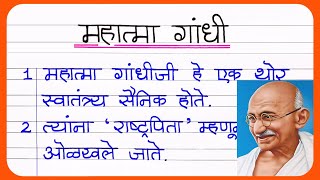 महात्मा गांधी
1 महात्मा गांधीजी हे एक थोर
स्वातंत्र्य सैनिक होते.
2 त्यांना ‘राष्ट्रपिता’
ओळखले जाते.